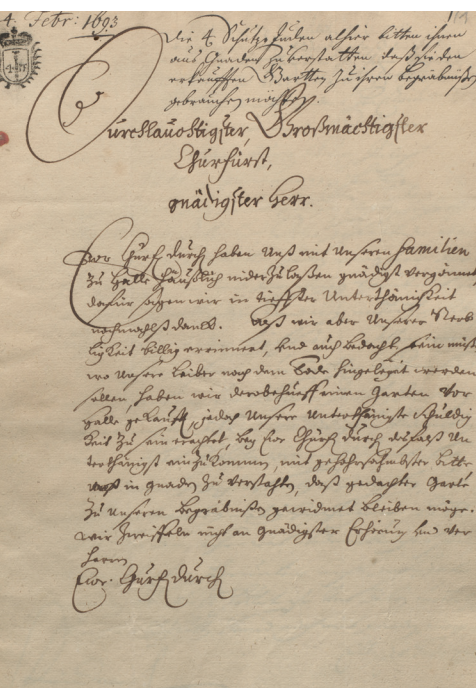 4. Febr: 1693
Die 4 Schutz Juden alhier bitten ihnen
aus Gnaden zu verstatten daß sie den
erkaufften Gartten zu ihren begräbnüß
gebrauchen möchten.
Durchlauchtigster, Großmächtigster
Churfürst,
gnädigster Herr.
Ewr Churf Durchl haben Unß mit Unseren familien
zu Halle häußlich niderzulaßen gnädigst vergönnet,
dafür sagen wir in tieffster Unterthänigkeit
nochmahls danck. Daß wir aber Unserer Sterb
ligkeit billig errinnert, Und auch bedacht sein müß
wo Unsere Leiber nach dem Tode hingelegt werden
sollen, haben wir einen Garten vor
Halle gekaufft, jedoch Unsere Unterthänigste schuldig
keit zu sein erachtet, bey Ewr Churf Durchl deßfalß Un
terthänigst einzukommen, mit gehorsahmbster bitte
in gnaden zu verstatten, daß gedachter Garte
zu Unseren begräbnißen gewidmet bleiben möge.
Wir zweiffeln nicht an gnädigster Erhörung Und ver
harren
Ewr. Churf Durchl